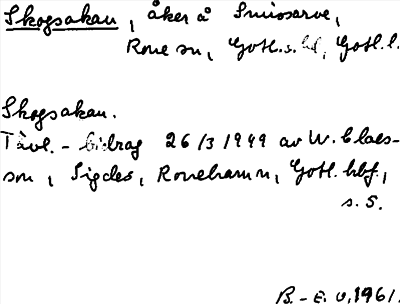 Skogsakan, åker å Smissarve,
Rone sn, Gotl. s. hd, Gotl. l.
Skogsakan.
Tävl.-bidrag 26/3 1949 av W. Claes-
son, Sigdes, Ronehamn, Gotl. hbf.,
s. 5.
B.-E. U. 1961.